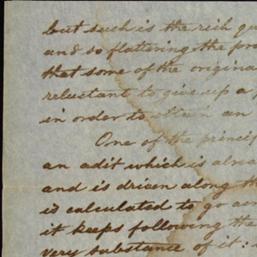 but such is the rich
and so flattering the
that some of the origina
reluctant to give up a
in order to obtain an
One of the princip
an adit which is alrea
and is driven along th
is calculated to go
it keeps following the
very substance of it: